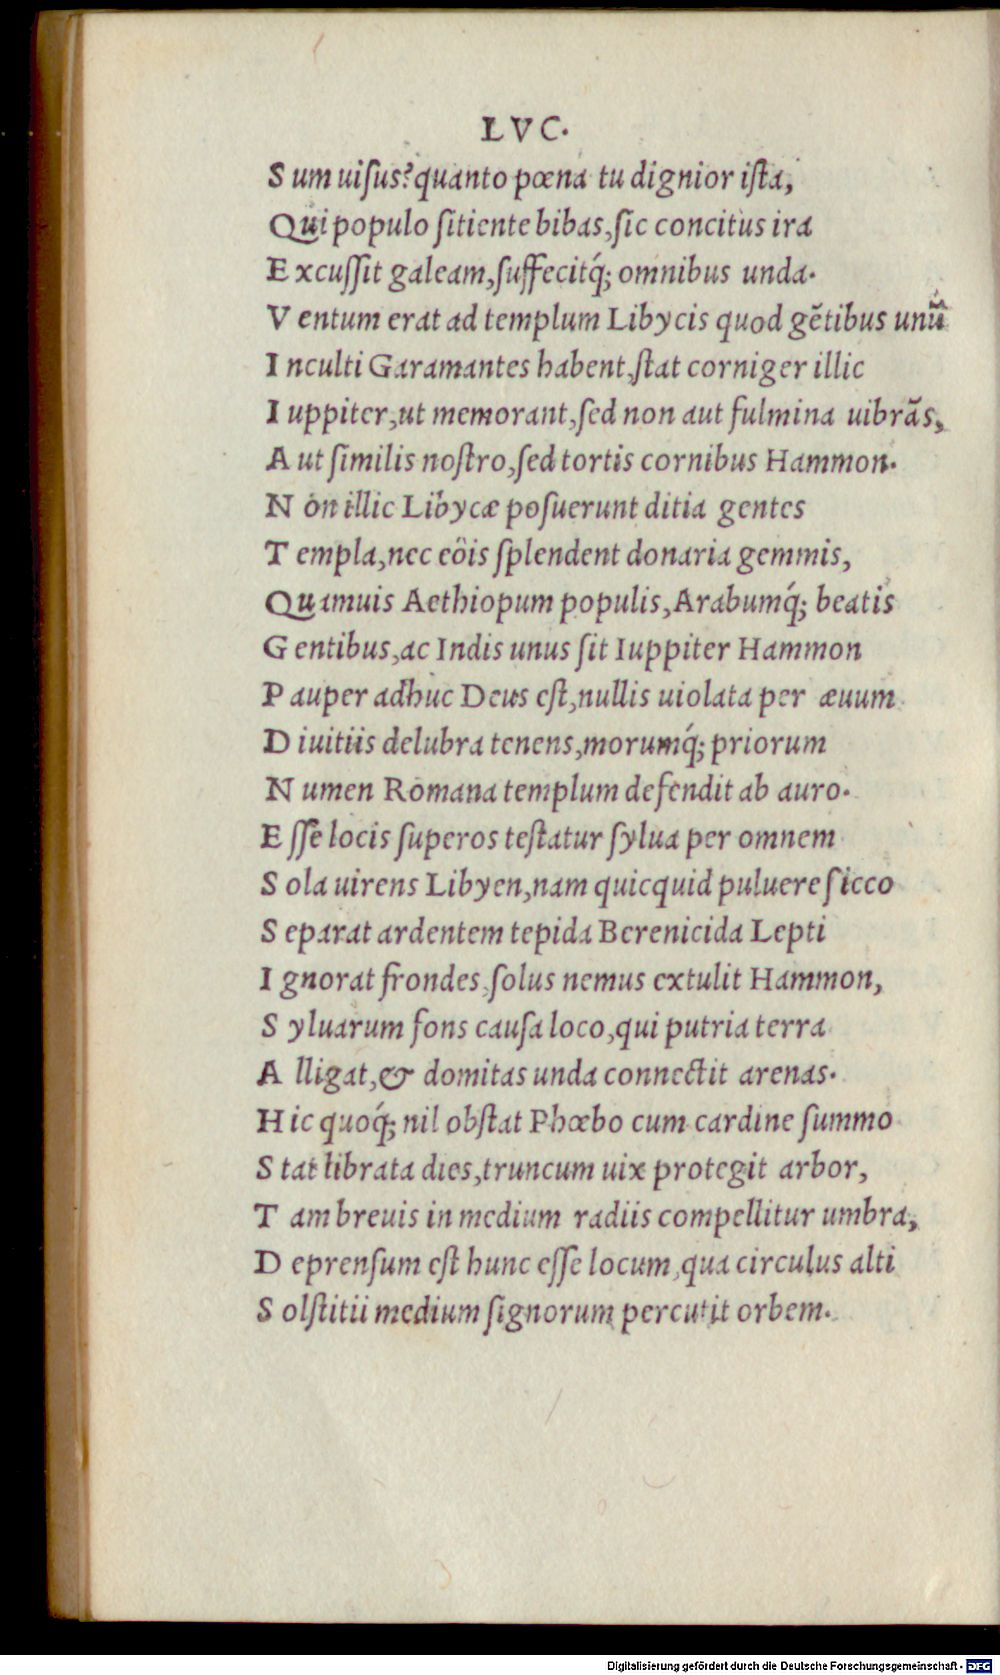 LVC.
S um uiſus? quanto pœna tu dignior iſta,
Qui populo ſitiente bibas, ſic concitus ira
E xcuſſit galeam, ſuffecitq́; omnibus unda.
V entum erat ad templum Libycis quod gẽtibus unũ
I nculti Garamantes habent, ſtat corniger illic
I uppiter, ut memorant, ſed non aut fulmina uibrãs,
A ut ſimilis noſtro, ſed tortis cornibus Hammon.
N on illic Libycæ poſuerunt ditia gentes
T empla, nec eöis ſplendent donaria gemmis,
Quamuis Aethiopum populis, Arabumq́; beatis
G entibus, ac Indis unus ſit Iuppiter Hammon
P auper adhuc Deus eſt, nullis uiolata per æuum
D iuitiis delubra tenens, morumq́; priorum
N umen Romana templum defendit ab auro.
E ſſe locis ſuperos teſtatur ſylua per omnem
S ola uirens Libyen, nam quicquid puluere ſicco
S eparat ardentem tepida Berenicida Lepti
I gnorat frondes, ſolus nemus extulit Hammon,
S yluarum fons cauſa loco, qui putria terra
A lligat, & domitas unda connectit arenas.
H ic quoq́; nil obſtat Phœbo cum cardine ſummo
S tat librata dies, truncum uix protegit arbor,
T am breuis in medium radiis compellitur umbra,
D eprenſum eſt hunc eſſe locum, qua circulus alti
S olſtitii medium ſignorum percutit orbem.
Digitalisierung gefördert durch die Deutsche Forschungsgemeinschaft - DFG